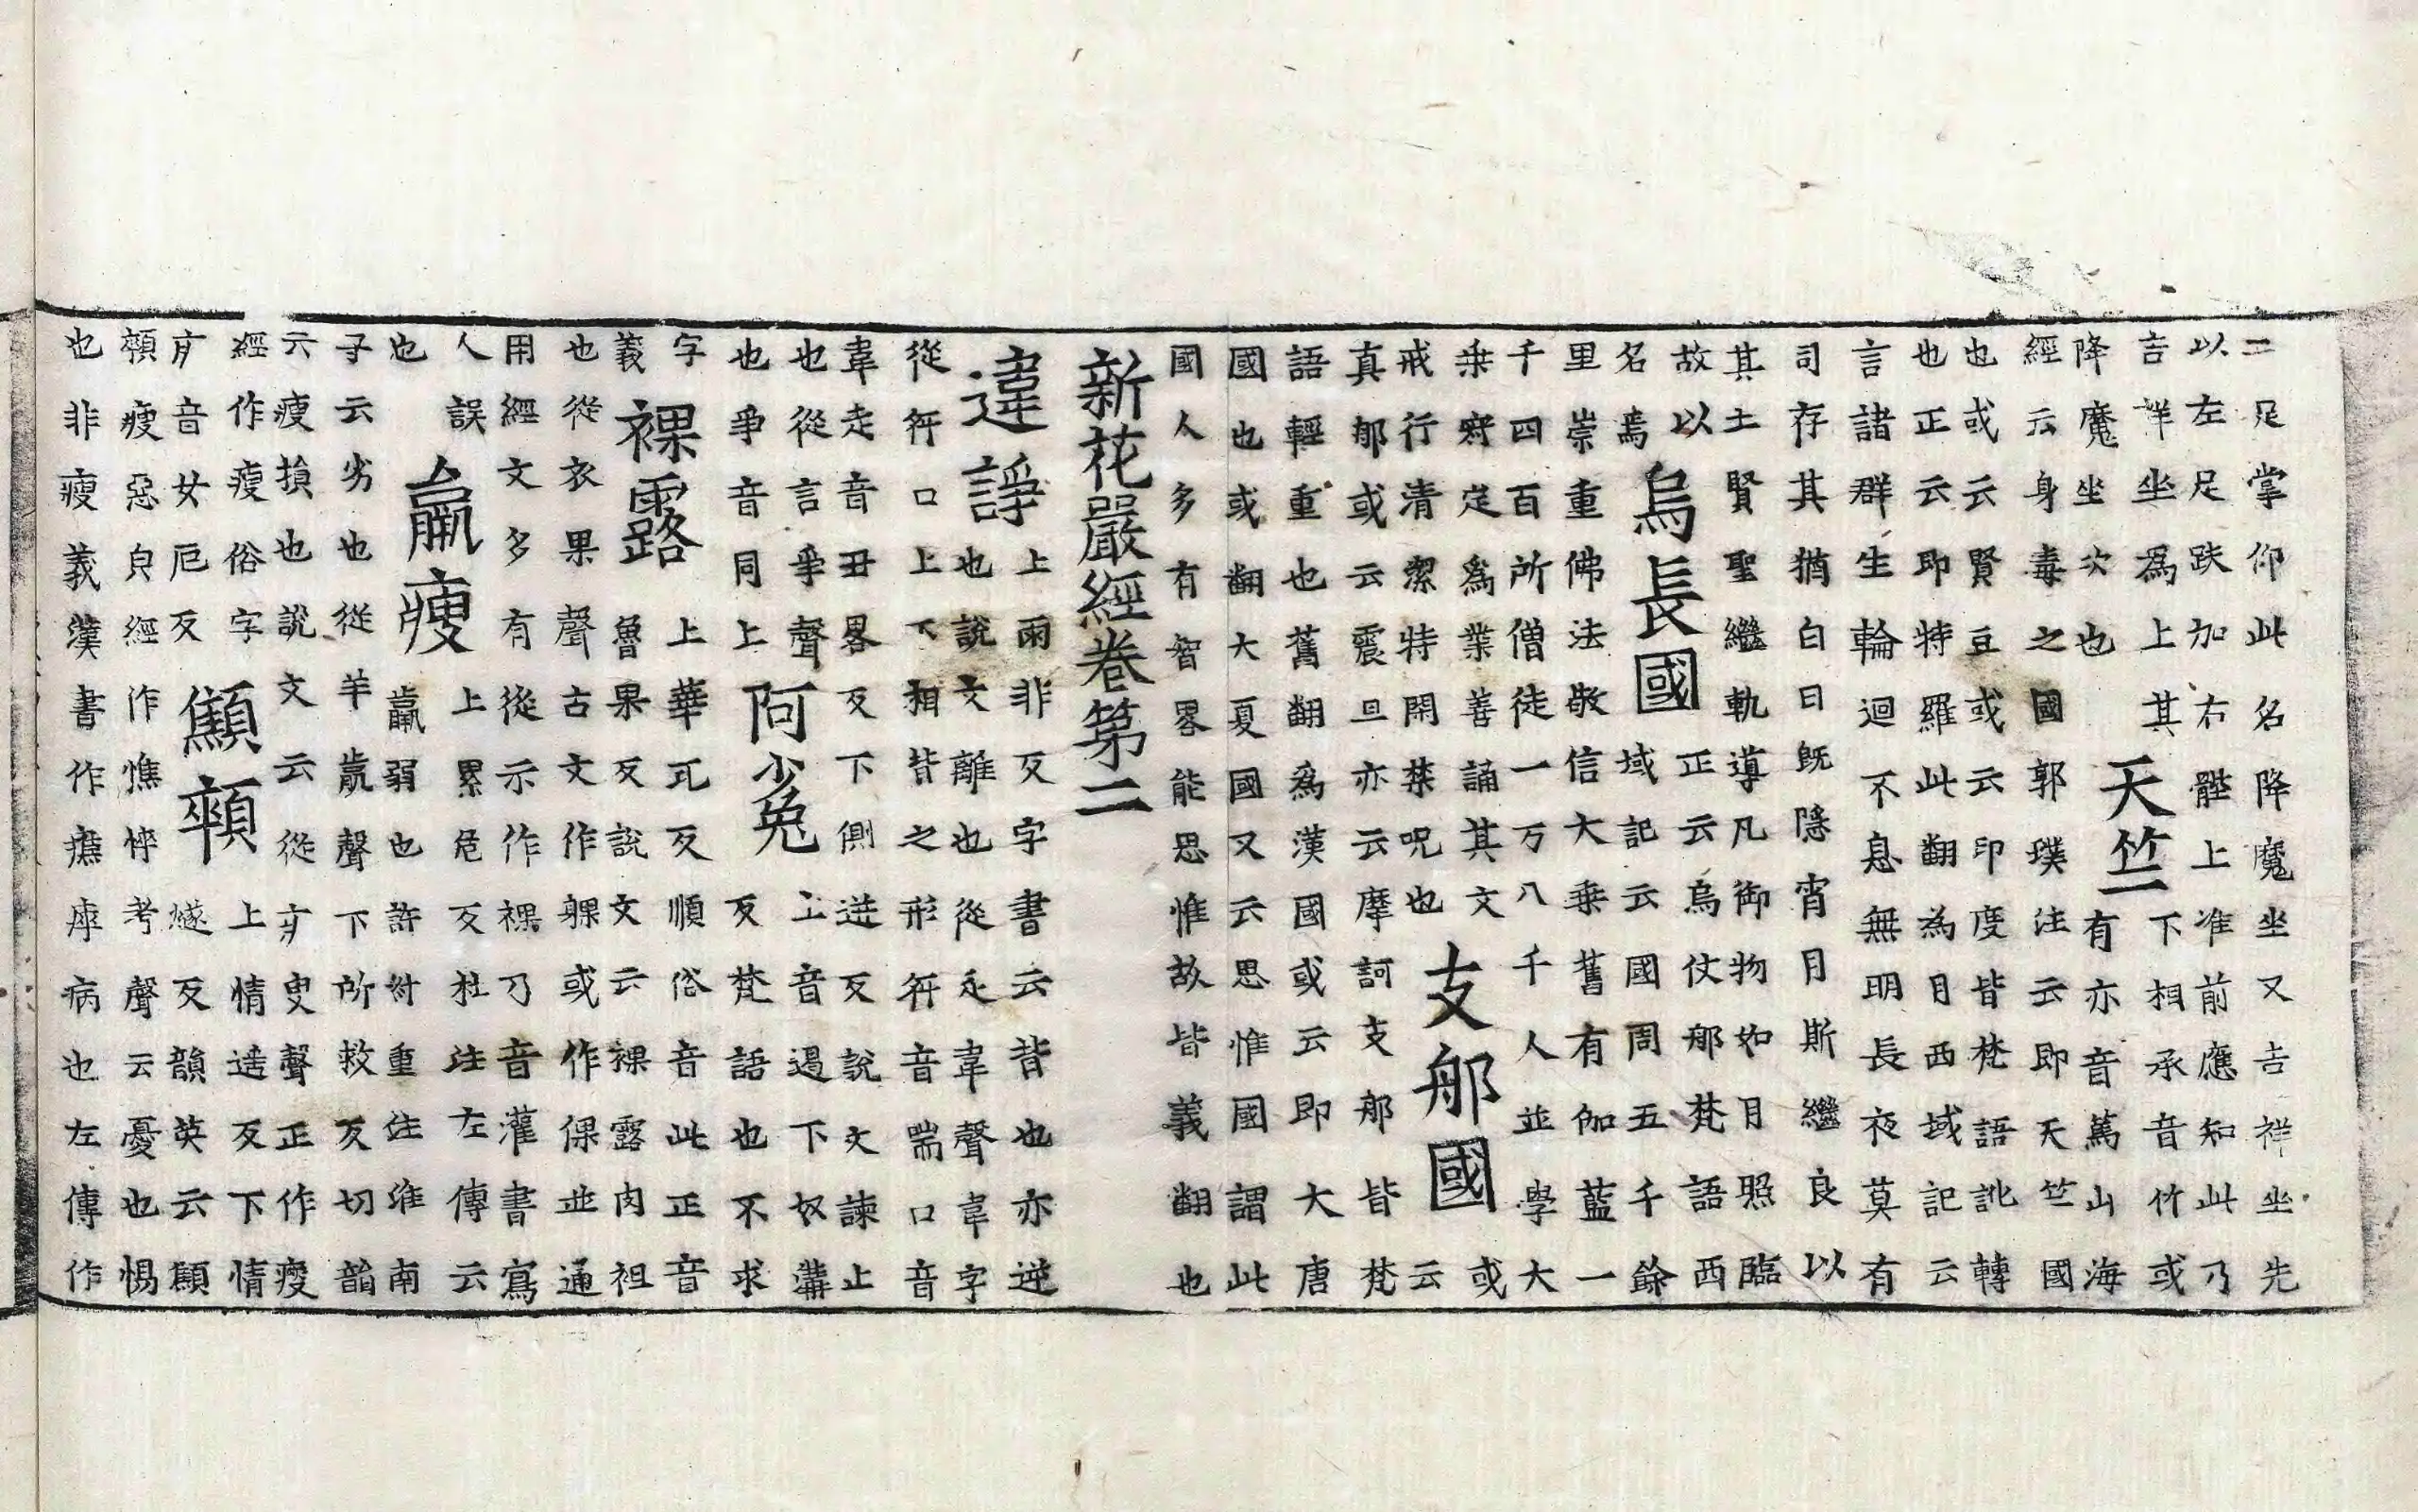 二足掌仰此名降魔坐又吉祥坐先
以左足趺加右䏶上准前應知此乃
吉祥坐為上其降魔坐次也 天竺 下相承音竹或有亦音篤山海
經云身毒之國郭璞注云即天竺國
也或云賢豆或云印度皆梵語訛轉
也正云即特羅此翻為月西域記云
言諸群生輪迴不息無明長夜莫有
司存其猶白日既隱宵月斯繼良以
其土賢聖繼軌導凡御物如月照臨
故以名焉 烏長國 正云烏仗郍梵語西域記云國周五千餘
里崇重佛法敬信大乗舊有伽藍一
千四百所僧徒一万八千人並學大
乗寂定為業善誦其文戒行清潔特閑禁呪也 支郍國 或云
真郍或云震旦亦云摩訶支郍皆梵
語輕重也舊翻為漢國或云即大唐
國也或翻大夏國又云思惟國謂此
國人多有智畧能思惟故皆義翻也
新花嚴經卷第二
違諍 上雨非反字書云背也亦逆也說文離也從辵韋聲韋字
從舛口上下相背之形舛音喘口音
韋辵音丑畧反下側迸反說文諫止
也從言爭聲也爭音同上 阿少兔 上音遏下奴溝反梵語也不求
字義 裸露 上華瓦反順俗音此正音魯果反說文云裸露肉袒
也從衣果聲古文作躶或作倮並通
用經文多有從示作祼乃音灌書寫
人誤也 羸瘦 上累危反杜注左傳云羸弱也許叔重注淮南
子云劣也從羊𣎆聲下所救反切韻
云瘦損也說文云從疒叟聲正作瘦
經作瘦俗字疒音女厄反 顦顇 上情遥反下情燧反韻英云顦
顇瘦惡皃經作憔悴考聲云憂也惕
也非瘦義漢書作癄瘁病也左傳作